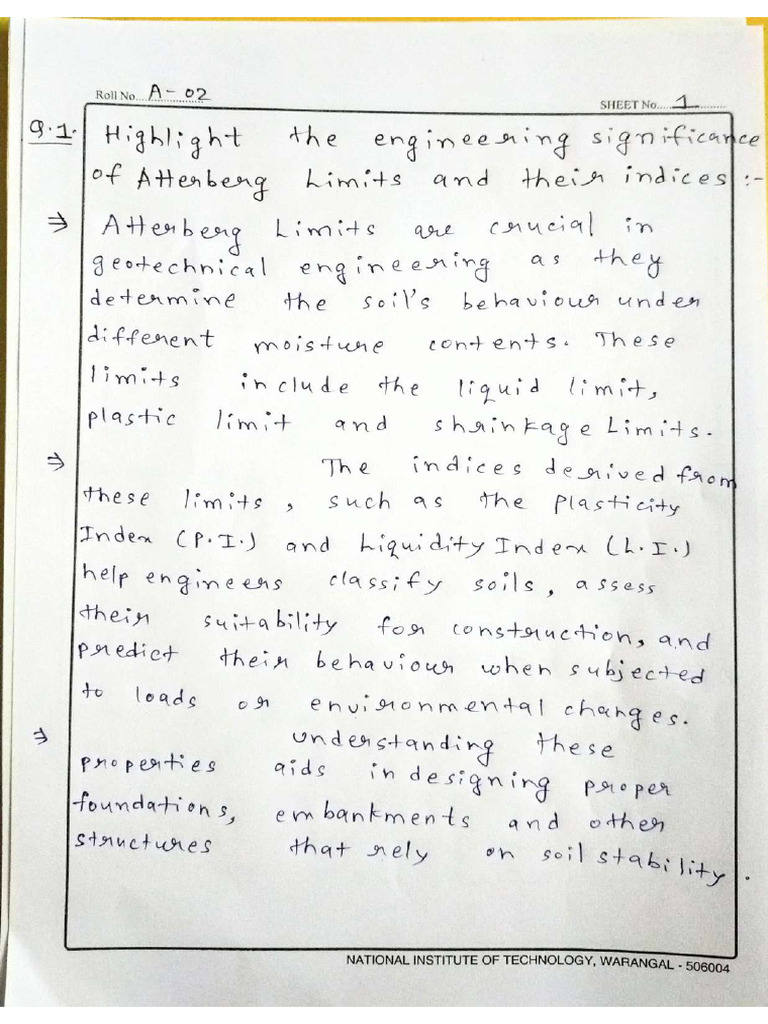 Roll No.... A-02
SHEET No.... 1 ..........
Q.1. Highlight the engineering significance
of Atterberg Limits and their indices :-
⇒ Atterberg Limits are crucial in
geotechnical engineering as they
determine the soil's behaviour under
different moisture contents. These
limits include the liquid limit,
plastic limit and shrinkage Limits.
⇒ The indices derived from
these limits, such as the Plasticity
Index (P.I.) and Liquidity Index (L.I.)
help engineers classify soils, assess
their suitability for construction, and
predict their behaviour when subjected
to loads or environmental changes.
⇒ Understanding these
properties aids in designing proper
foundations, embankments and other
structures that rely on soil stability.
NATIONAL INSTITUTE OF TECHNOLOGY, WARANGAL - 506004